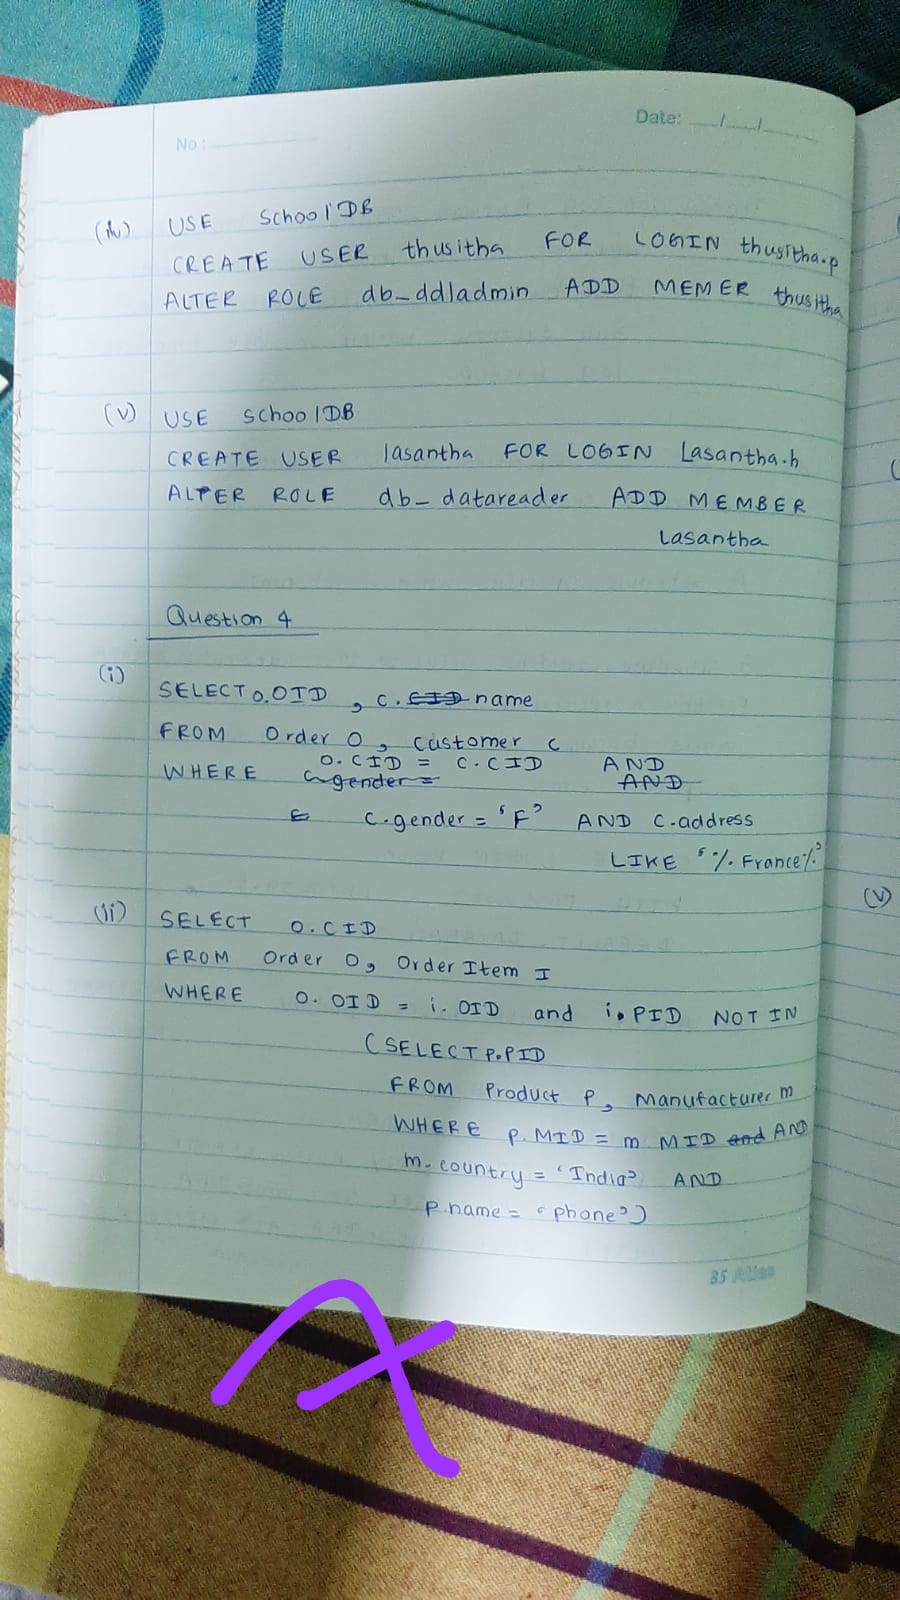 No:
Date: __/__/__
(iv) USE SchoolDB
CREATE USER thusitha FOR LOGIN thusitha.p
ALTER ROLE db_ddladmin ADD MEMER thusitha
(v) USE SchoolDB
CREATE USER lasantha FOR LOGIN Lasantha.h
ALTER ROLE db_datareader ADD MEMBER
Lasantha
Question 4
(i)
SELECT O.OID , C. CID name
FROM Order O, Customer C
O.CID = C.CID AND
WHERE C.gender = AND
C.gender = 'F' AND C.address
LIKE '%France%'
(ii) SELECT O.CID
FROM Order O, Order Item I
WHERE O.OID = i.OID and i.PID NOT IN
(SELECT P.PID
FROM Product P, Manufacturer m
WHERE P.MID = m MID and AND
m.country = 'India' AND
P.name = 'phone')
85 Atlas
(v)